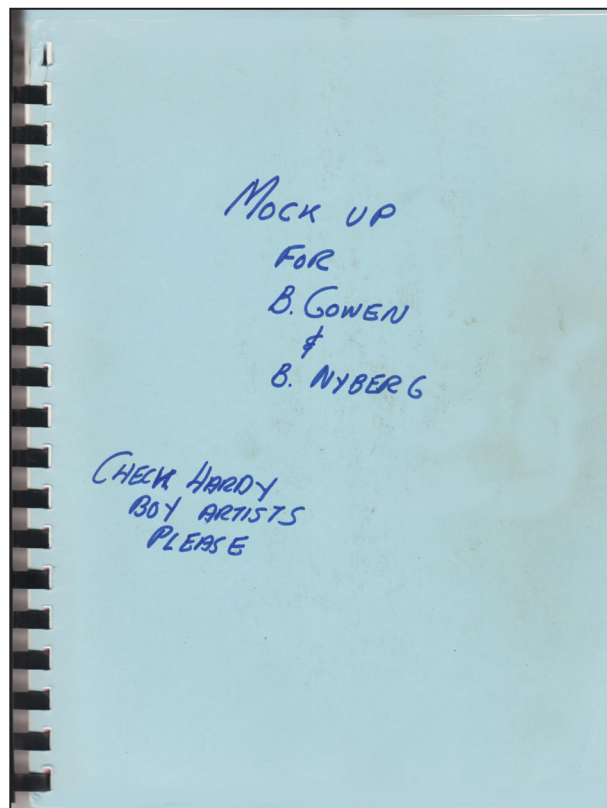 MOCK UP
FOR
B. GOWEN
&
B. NYBERG
CHECK HARDY
BOY ARTISTS
PLEASE